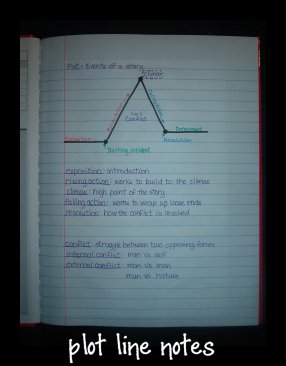 Plot: Events of a story
climax
Rising Action
Falling Action
(vs.)
Conflict
Exposition
Denouement
Inciting incident
Resolution
exposition: introduction
rising action: works to build to the climax
climax: high point of the story
falling action: works to wrap up loose ends
resolution: how the conflict is resolved
conflict: struggle between two opposing forces
internal conflict: man vs. self
external conflict: man vs. man
man vs. nature
plot line notes